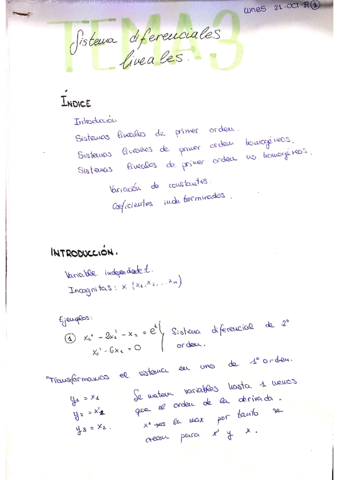 TEMA 3
Sistema diferenciales
lineales.
ÍNDICE
Introducción
Sistemas lineales de primer orden.
Sistemas lineales de primer orden homogéneos.
Sistemas lineales de primer orden no homogéneos.
Variación de constantes.
Coeficientes indeterminados.
INTRODUCCIÓN.
Variable independiente
Incognitas: x (x₁, x₂, ... xₙ)
Ejemplos:
① x₁'' - 2x₁' - x₂ = eᵗ } Sistema diferencial de 2º
x₂' - 6x₁ = 0 orden.
Transformamos el sistema en uno de 1º orden.
y₁ = x₁ Se meten variables hasta 1 menos
que el orden de la derivada.
y₃ = x₂ x'' es la max por tanto se
crean para x' y x.